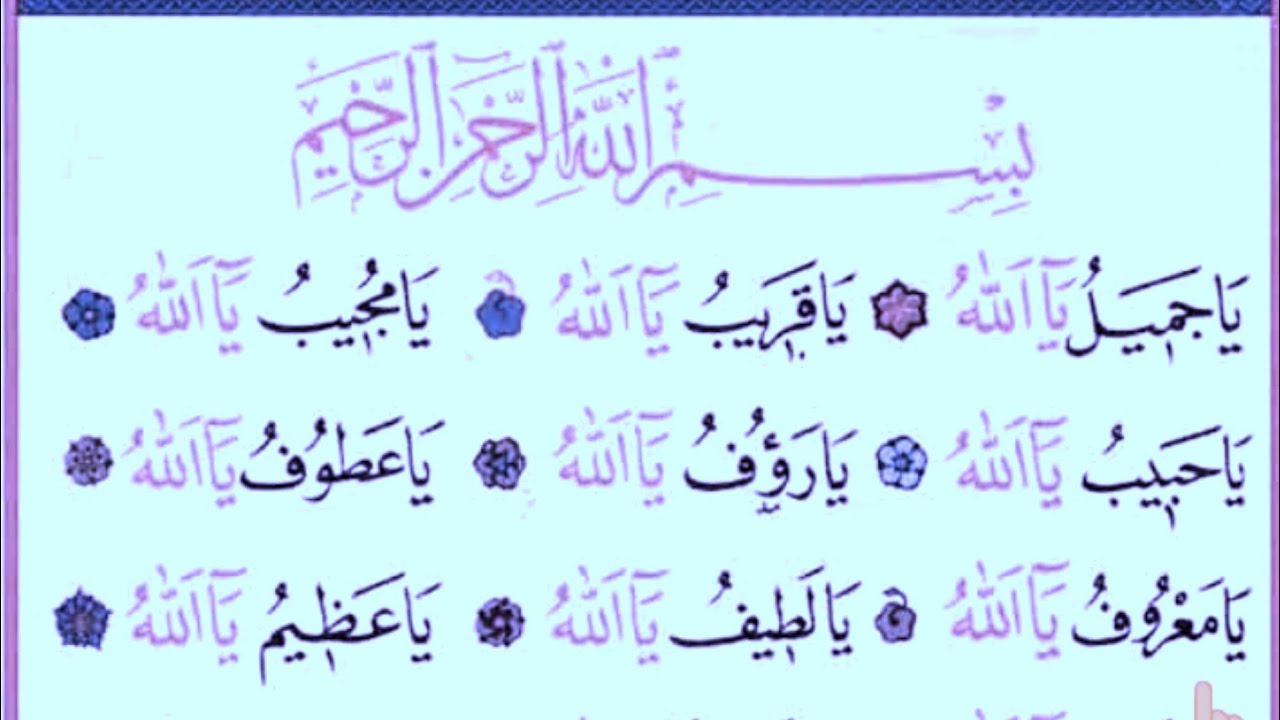 بِسْمِ اللّٰهِ الرَّحْمٰنِ الرَّحِيْمِ
يَا جَمِيَلُ يَآ اَللّٰهُ يَا قَرِيَبُ يَآ اَللّٰهُ يَا مُجِيبُ يَآ اَللّٰهُ
يَا حَبِيَبُ يَآ اَللّٰهُ يَا رَؤُفُ يَآ اَللّٰهُ يَا عَطُوفُ يَآ اَللّٰهُ
يَا مَعْرُوفُ يَآ اَللّٰهُ يَا لَطِيفُ يَآ اَللّٰهُ يَا عَظِيمُ يَآ اَللّٰهُ